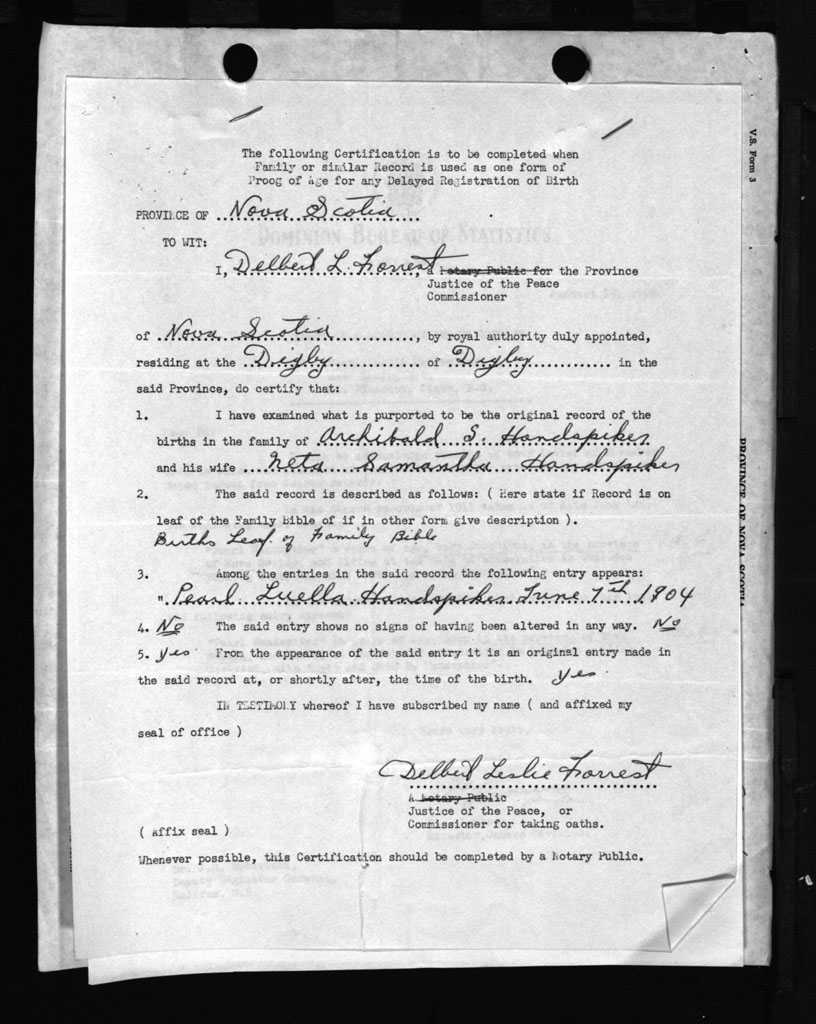 The following Certification is to be completed when
Family or similar Record is used as one form of
Proog of Age for any Delayed Registration of Birth
PROVINCE OF Nova Scotia
DOMINION BUREAU OF STATISTICS
TO WIT:
I, Delbert L. Forrest, a Notary Public for the Province
Justice of the Peace
Commissioner
of Nova Scotia, by royal authority duly appointed,
residing at the Digby of Digby in the
said Province, do certify that:
1. I have examined what is purported to be the original record of the
births in the family of Archibald S. Handspiker
and his wife Neta Samantha Handspiker
2. The said record is described as follows: ( Here state if Record is on
leaf of the Family Bible of if in other form give description ).
Births Leaf of Family Bible
3. Among the entries in the said record the following entry appears:
" Pearl Luella Handspiker June 7th 1904
4. No The said entry shows no signs of having been altered in any way. No
5. Yes From the appearance of the said entry it is an original entry made in
the said record at, or shortly after, the time of the birth. Yes.
IN TESTIMONY whereof I have subscribed my name ( and affixed my
seal of office )
Delbert Leslie Forrest
A Notary Public
Justice of the Peace, or
Commissioner for taking oaths.
( Affix seal )
Whenever possible, this Certification should be completed by a Notary Public.
V.S. Form 3
PROVINCE OF NOVA SCOTIA